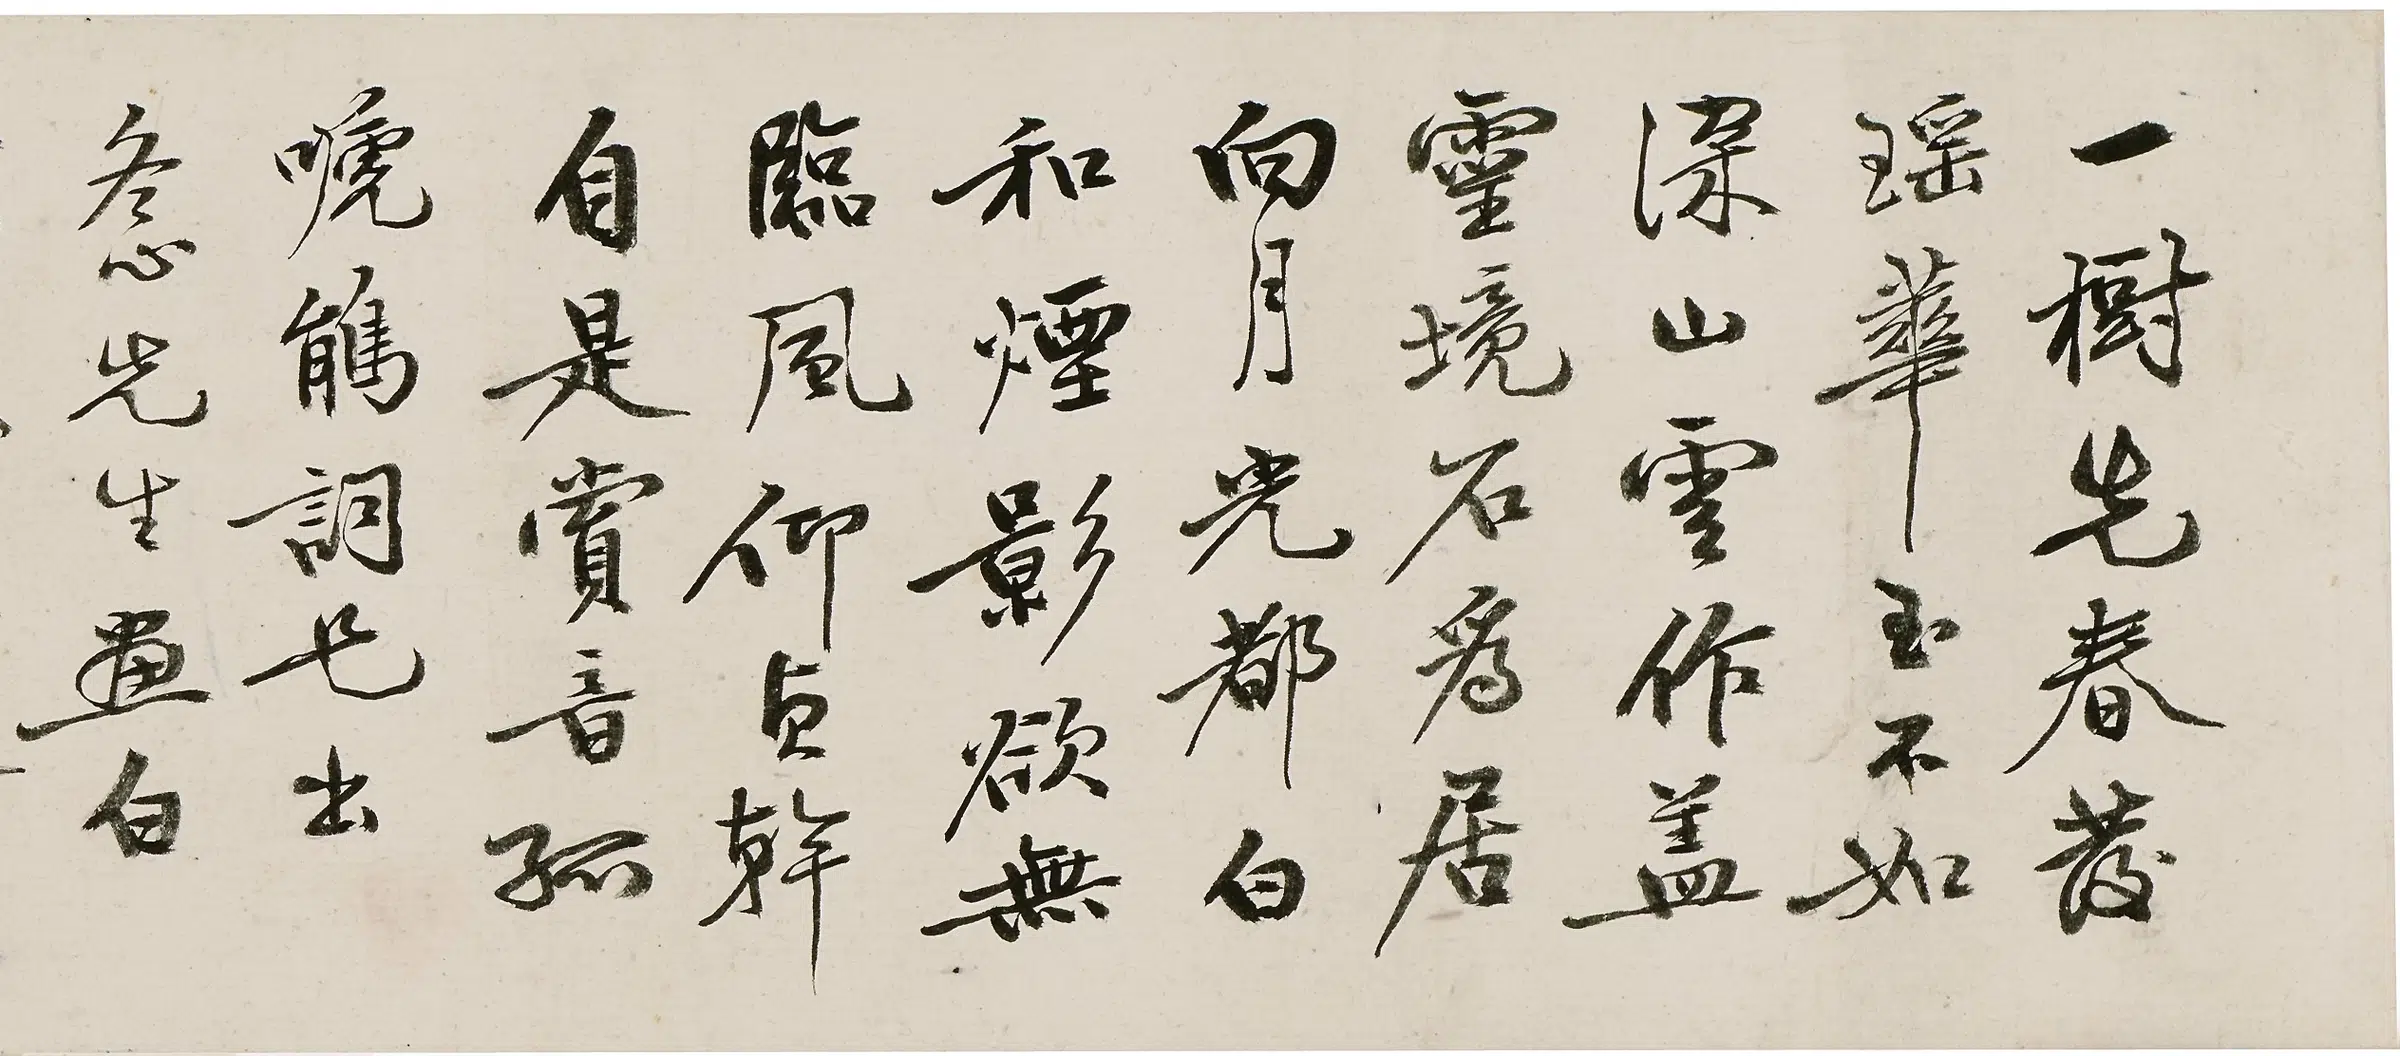 一樹先春發
瑶華玉不如
深山雲作盖
靈境石爲居
向月光都白
和煙影欲無
臨風仰貞幹
自是賞音孤
嗁鵑詞也出
冬心先生畫白